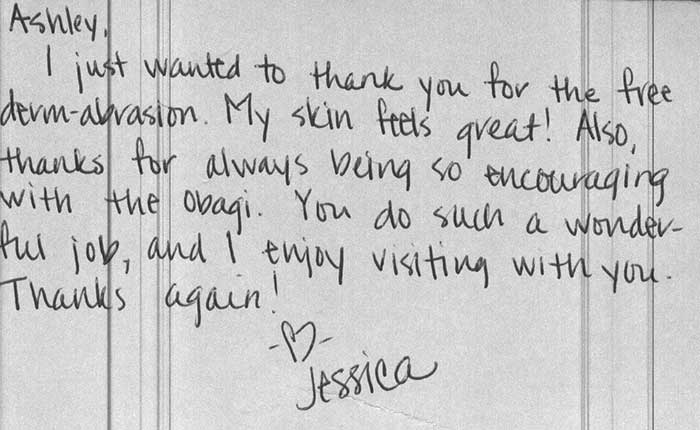 Ashley,
I just wanted to thank you for the free
derm-abrasion. My skin feels great! Also,
thanks for always being so encouraging
with the Obagi. You do such a wonder-
ful job, and I enjoy visiting with you.
Thanks again!
-♡-
Jessica